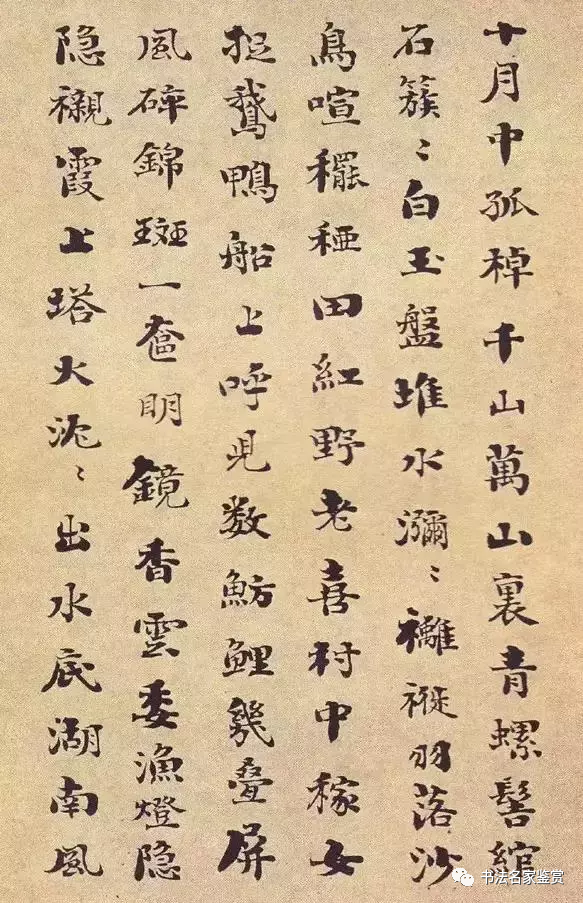 十月中孤棹千山萬山裏青螺髻綰
石簇〻白玉盤堆水瀰〻襹褷羽落沙
鳥喧穲稏田紅野老喜村中稼女
捉鵞鴨船上呼児数魴鯉幾疊屏
風碎錦斑一奩明鏡香雲委漁燈隐
隐襯霞上塔火沉〻出水底湖南風
书法名家鉴赏